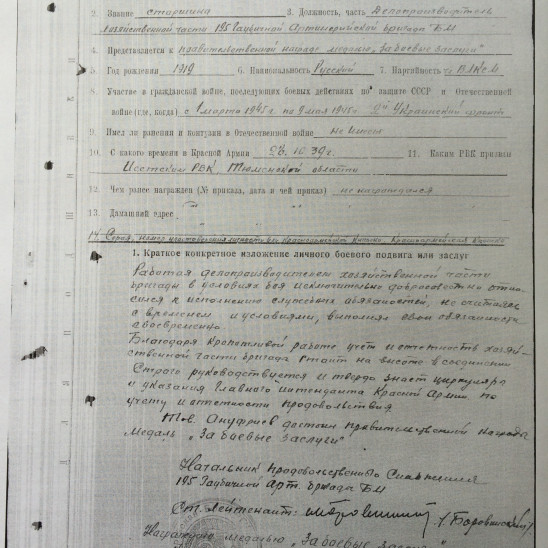 2. Звание старшина 3. Должность, часть Делопроизводитель
хозяйственной части 195 Гаубичной Артиллерийской бригады БМ
4. Представляется к правительственной награде медалью „За боевые заслуги"
5. Год рождения 1919 6. Национальность Русский 7. Партийность чл. ВЛКСМ
8. Участие в гражданской войне, последующих боевых действиях по защите СССР и Отечественной
войне (где, когда) с 1 марта 1945 г по 9 мая 1945 г 2й Украинский фронт
9. Имел ли ранения и контузии в Отечественной войне не имел
10. С какого времени в Красной Армии 26.10.39 г. 11. Каким РВК призван
Исетским РВК Тюменской области
12. Чем ранее награжден (№ приказа, дата и чей приказ) не награждался
13. Домашний адрес
14. Серия, номер удостоверения личности Красноармейская Книжка
1. Краткое конкретное изложение личного боевого подвига или заслуг
Работая делопроизводителем хозяйственной части
бригады в условиях боя исключительно добросовестно отно-
сился к исполнению служебных обязаностей, не считаясь
с временем и условиями, выполнял свои обязаности
своевременно.
Благодаря кропотливой работе учет и отчетность хозяй-
ственной части бригады стоит на высоте в соединении
Строго руководствуется и твердо знает циркуляра
и указания Главного интенданта Красной Армии по
учету и отчетности продовольствия
Тов. Онуфриев достоин правительственной награды
Медаль „За боевые заслуги"
Начальник продовольственного Снабжения
195 Гаубичной Арт. бригады БМ
Ст. лейтенант:
Награжден медалью „За боевые